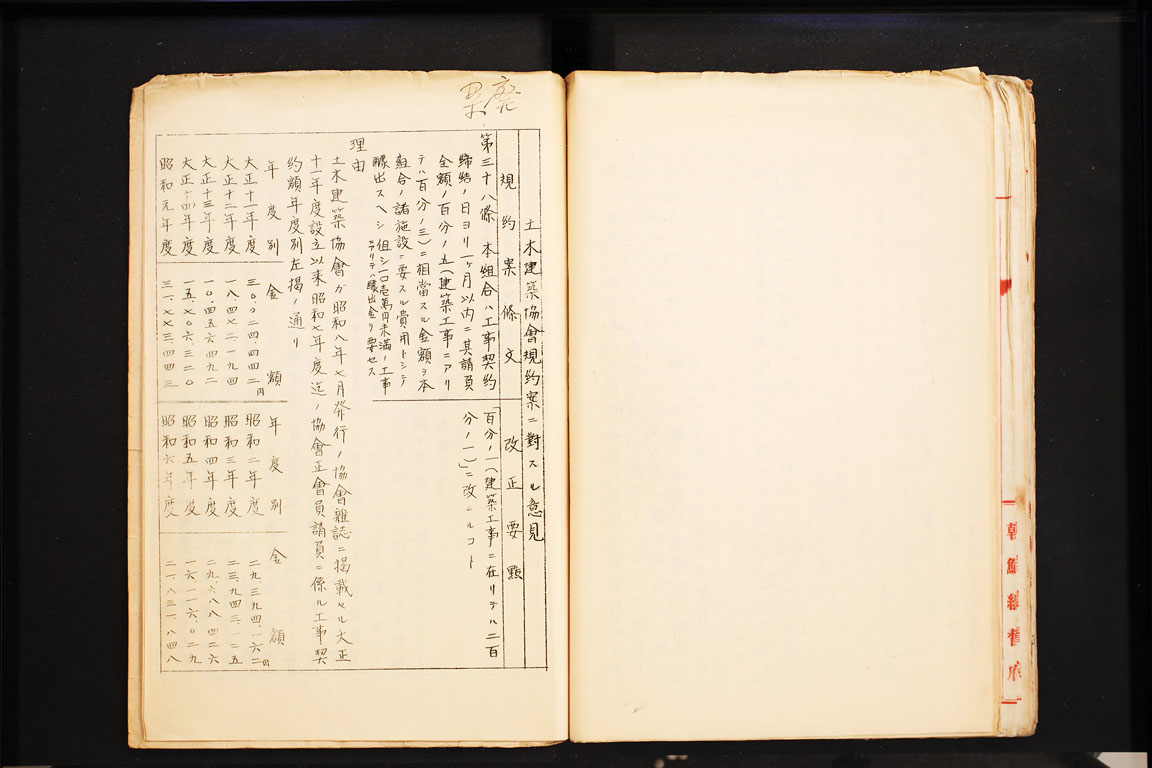 廃案
土木建築協會規約案ニ對スル意見
規約案條文
改正要點
第三十八條 本組合ハ工事契約
締結ノ日ヨリ一ヶ月以内ニ其請負
全額ノ百分ノ五(建築工事ニアリ
テハ百分ノ三)ニ相當スル金額ヲ本
組合ノ諸施設ニ要スル費用トシテ
醵出スヘシ 但シ一口壱萬円未満ノ工事
ニアリテハ醵出金ヲ要セス
百分ノ一(建築工事ニ在リテハ二百
分ノ一)」ニ改ムルコト
理由
土木建築協會ガ昭和八年七月發行ノ協會雜誌ニ掲載セル大正
十一年度設立以来昭和七年度迄ノ協會正會員請負ニ係ル工事契
約額年度別左掲ノ通リ
年度別 金額 年度別 金額
大正十一年度 三〇、〇二四、四四二円 昭和二年度 二九、三九四、一六二円
大正十二年度 一八、四七二、一九四 昭和三年度 二三、九四三、一二五
大正十三年度 一〇、四五六、四九二 昭和四年度 二九、六八八、四二六
大正十四年度 一五、七〇六、三二〇 昭和五年度 一六、一一六、〇二九
昭和元年度 三一、七七三、四四三 昭和六年度 二一、八三一、八四八
朝鮮總督府